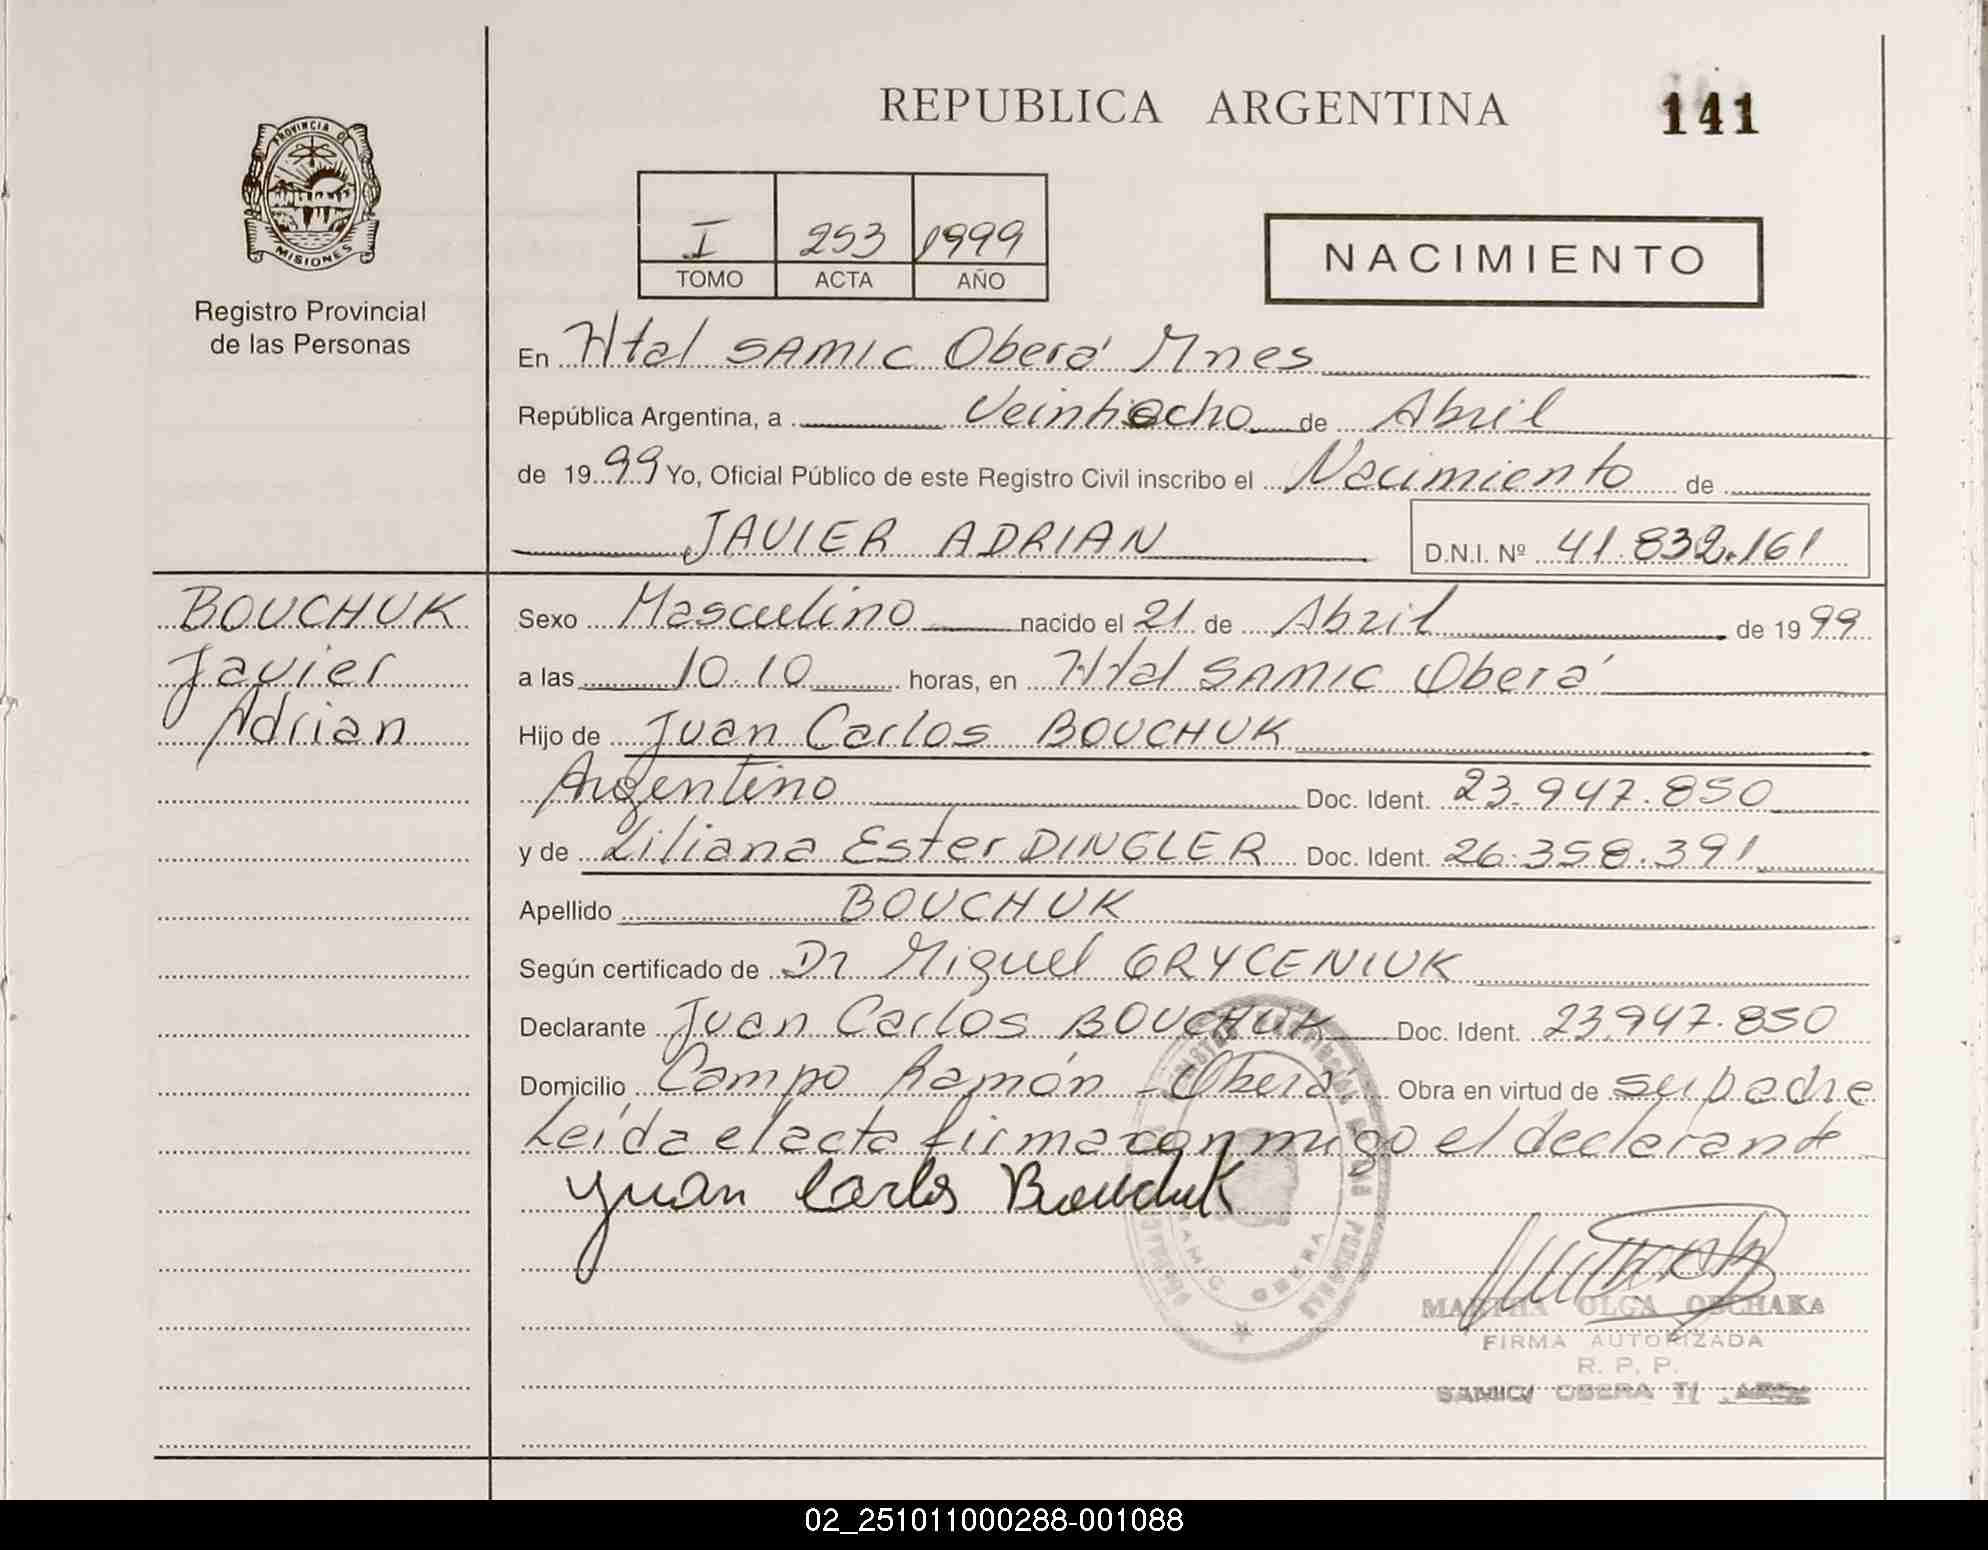 REPUBLICA ARGENTINA
141
PROVINCIA DE
MISIONES
Registro Provincial
de las Personas
I 253 1999
TOMO ACTA AÑO
NACIMIENTO
En Htal SAMIC Oberá Mnes
República Argentina, a Veintiocho de Abril
de 1999 Yo, Oficial Público de este Registro Civil inscribo el Nacimiento de
JAVIER ADRIAN D.N.I. Nº 41.832.161
BOUCHUK
Javier
Adrian
Sexo Masculino nacido el 21 de Abril de 1999
a las 10.10 horas, en Htal SAMIC Oberá
Hijo de Juan Carlos BOUCHUK
Argentino Doc. Ident. 23.947.850
y de Liliana Ester DINGLER Doc. Ident. 26.358.391
Apellido BOUCHUK
Según certificado de Dr Miguel GRYCENIUK
Declarante Juan Carlos BOUCHUK Doc. Ident. 23.947.850
Domicilio Campo Ramón - Oberá Obra en virtud de su padre
Leída el acta firma conmigo el declarante
Juan Carlos Bouchuk
MARTHA OLGA OBCHAKA
FIRMA AUTORIZADA
R. P. P.
SAMIC/ OBERA
02_251011000288-001088